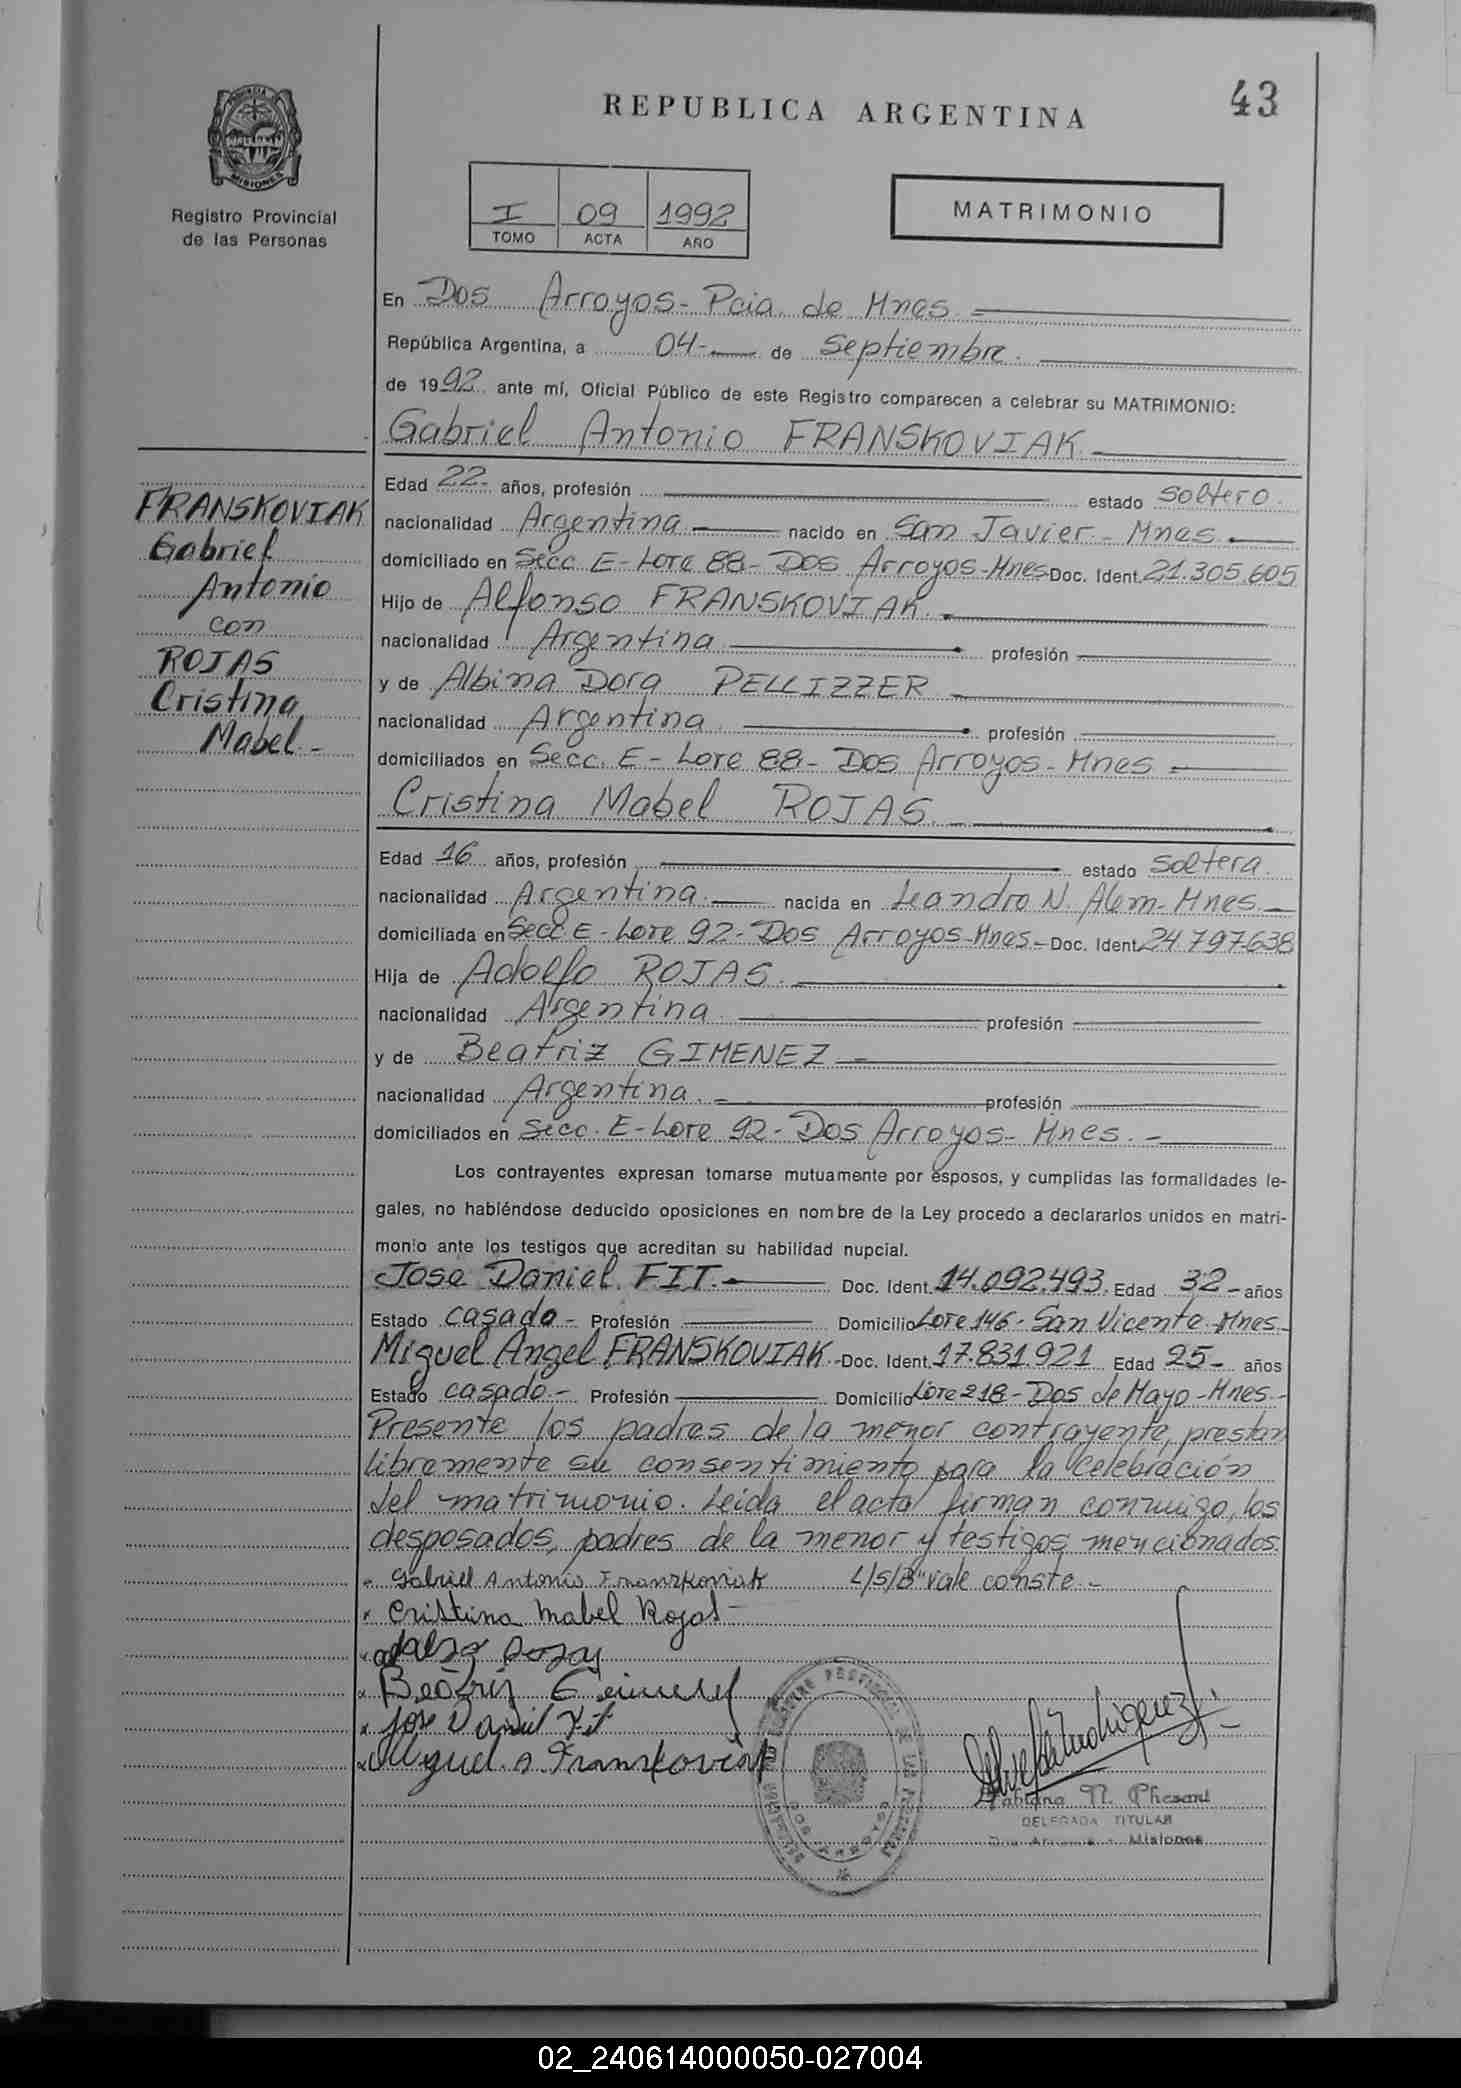 43
REPUBLICA ARGENTINA
PROVINCIA DE
MISIONES
Registro Provincial
de las Personas
I 09 1992
TOMO ACTA AÑO
MATRIMONIO
En Dos Arroyos - Pcia. de Mnes.
República Argentina, a 04- de Septiembre.
de 1992 ante mí, Oficial Público de este Registro comparecen a celebrar su MATRIMONIO:
Gabriel Antonio FRANSKOVIAK.
FRANSKOVIAK
Gabriel
Antonio
con
ROJAS
Cristina
Mabel.-
Edad 22- años, profesión estado soltero.
nacionalidad Argentina nacido en San Javier - Mnes.
domiciliado en Secc. E - Lote 88 - Dos Arroyos - Mnes Doc. Ident. 21.305.605
Hijo de Alfonso FRANSKOVIAK.
nacionalidad Argentina profesión
y de Albina Dora PELLIZZER
nacionalidad Argentina. profesión
domiciliados en Secc. E - Lote 88 - Dos Arroyos - Mnes
Cristina Mabel ROJAS.
Edad 16 años, profesión estado soltera.
nacionalidad Argentina. nacida en Leandro N. Alem - Mnes.
domiciliada en Secc E - Lote 92 - Dos Arroyos - Mnes - Doc. Ident. 24.797.638
Hija de Adolfo ROJAS.
nacionalidad Argentina. profesión
y de Beatriz GIMENEZ
nacionalidad Argentina. profesión
domiciliados en Secc. E - Lote 92 - Dos Arroyos - Mnes. -
Los contrayentes expresan tomarse mutuamente por esposos, y cumplidas las formalidades le-
gales, no habiéndose deducido oposiciones en nombre de la Ley procedo a declararlos unidos en matri-
monio ante los testigos que acreditan su habilidad nupcial.
Jose Daniel FIT. Doc. Ident. 14.092.493. Edad 32 - años
Estado casado - Profesión Domicilio Lote 146 - San Vicente - Mnes.
Miguel Angel FRANSKOVIAK - Doc. Ident. 17.831.921 Edad 25 - años
Estado casado. - Profesión Domicilio Lote 218 - Dos de Mayo - Mnes. -
Presente los padres de la menor contrayente, prestan
libremente su consentimiento para la celebración
del matrimonio. Leída el acta firman conmigo, los
desposados, padres de la menor y testigos mencionados.
Gabriel Antonio Franzkoviak L/S/B "vale conste. -
x Cristina Mabel Rojas -
x Beatriz
x Jose Daniel Fit
x Miguel A Franskoviak
DELEGADA TITULAR
Misiones
02_240614000050-027004